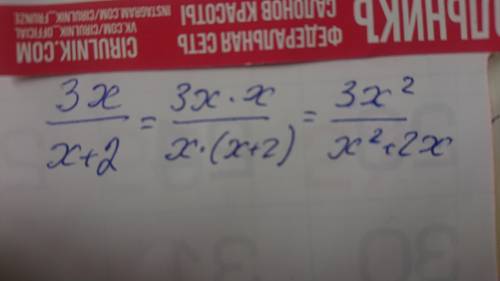 ЛЬНИКЪ
ФЕДЕРАЛЬНАЯ СЕТЬ
САЛОНОВ КРАСОТЫ
CIRULNIK.COM
VK.COM/CIRULNIK_OFFICIAL
INSTAGRAM.COM/CIRULNIK_FRUNZE
3x/(x+2) = 3x·x/(x·(x+2)) = 3x²/(x²+2x)